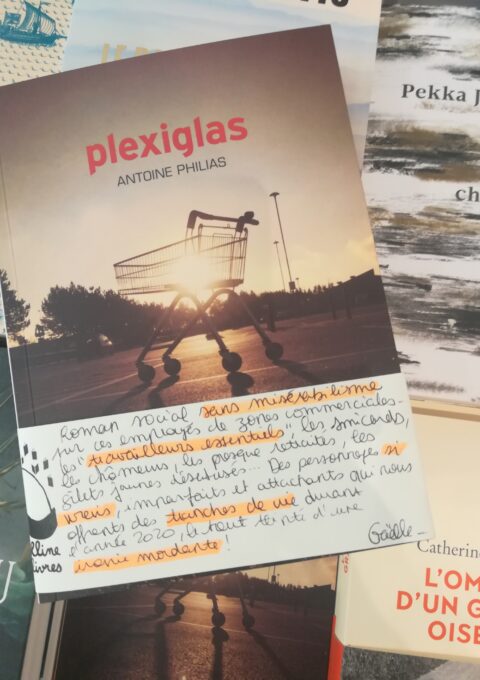 plexiglas
ANTOINE PHILIAS
Pekka J
ch
Roman social sans misérabilisme
sur ces employés de zones commerciales
les "travailleurs essentiels", les smicards,
les chômeurs, les presque retraités, les
gilets jaunes désabusés... Des personnages si
vrais, imparfaits et attachants qui nous
offrent des tranches de vie durant
l'année 2020, le tout teinté d'une
ironie mordante !
Gaëlle
lline
livres
Catherine
L'OM
D'UN G
OISE